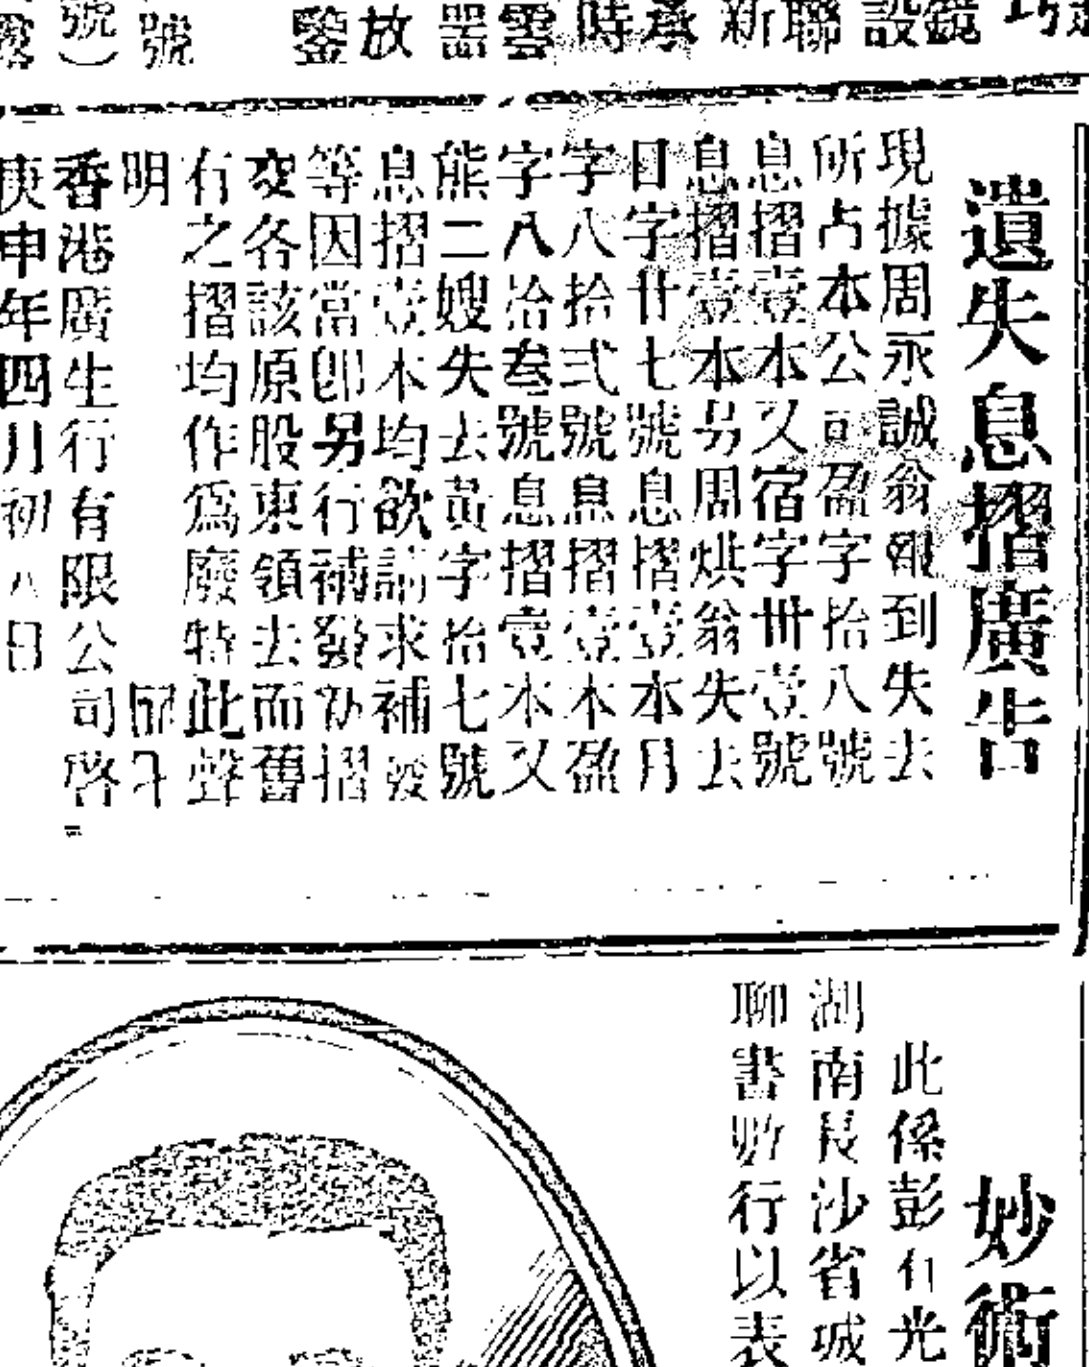 遺失息摺廣告
現據周永誠翁報到失去
所占本公司盈字拾八號
息摺壹本又宿字卅壹號
息摺壹本另周烘翁失去
日字廿七號息摺壹本月
字八拾弍號息摺壹本盈
字八拾叁號息摺壹本又
熊二嫂失去黃字拾七號
息摺壹本均欲請求補發
等因當卽另行補發新摺
交各該原股東領去而舊
有之摺均作爲廢特此聲
明
香港廣生行有限公司啓
庚申年四月初八日
號
號
鑒
放
器
雲
時
承
新
聯
設
鏡
巧
妙術
此係彭有光
湖南長沙省城
聊書數行以表